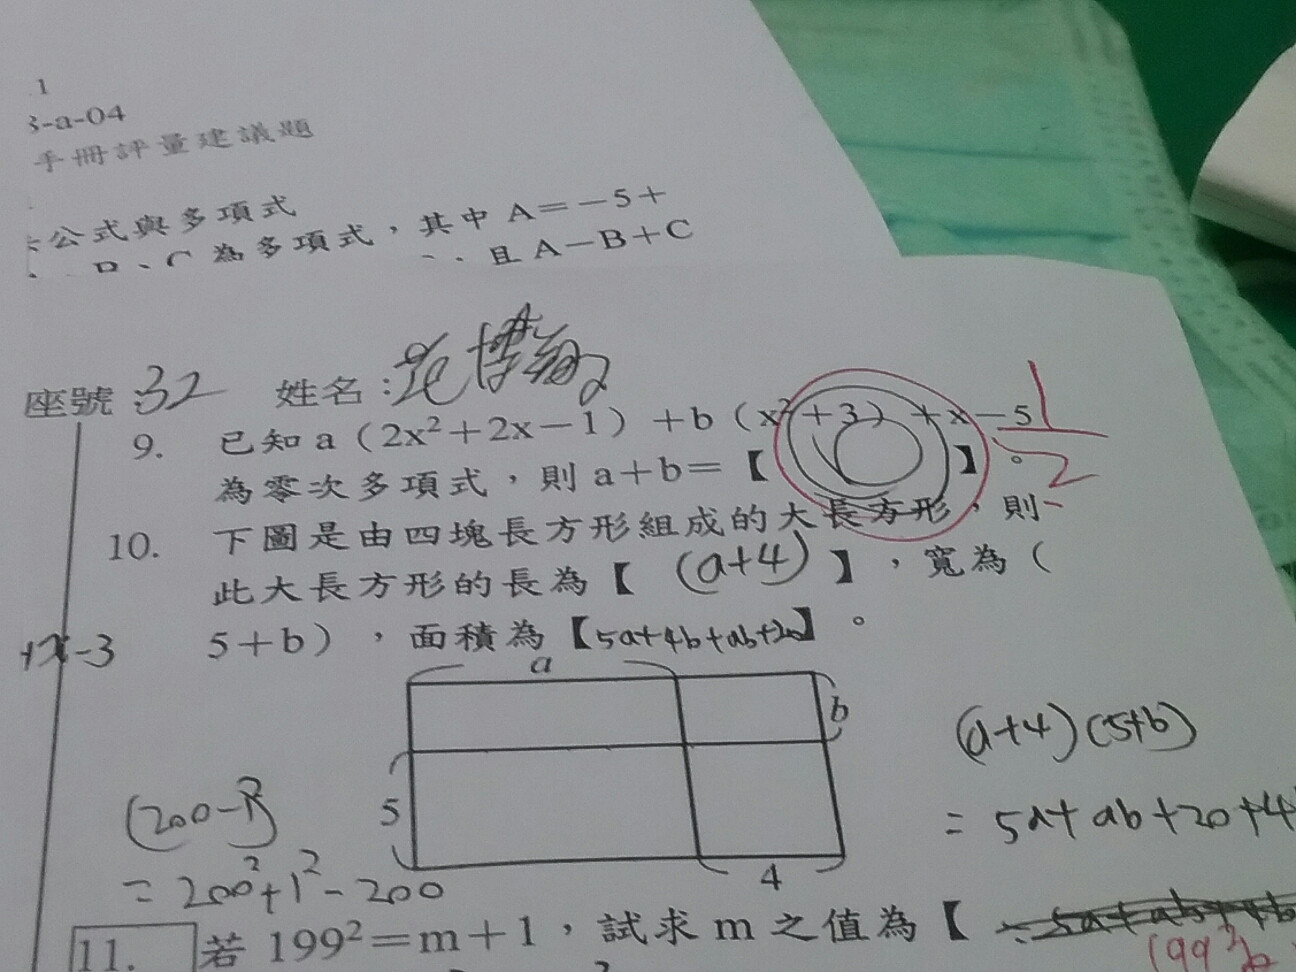 1
3-a-04
手冊評量建議題
公式與多項式
、C 為多項式，其中 A=-5+
且 A-B+C
座號:32 姓名:
9. 已知 a（2x²+2x-1）+b（x²+3）+x-5
為零次多項式，則 a+b=【 】。
1
2
10. 下圖是由四塊長方形組成的大長方形，則
此大長方形的長為【 (a+4) 】，寬為（
5+b），面積為【5a+4b+ab+20】。
+x-3
a
b
5
4
(a+4)(5+b)
= 5a+ab+20+4
(200-1)²
= 200²+1²-200
11. 若 199²=m+1，試求 m 之值為【